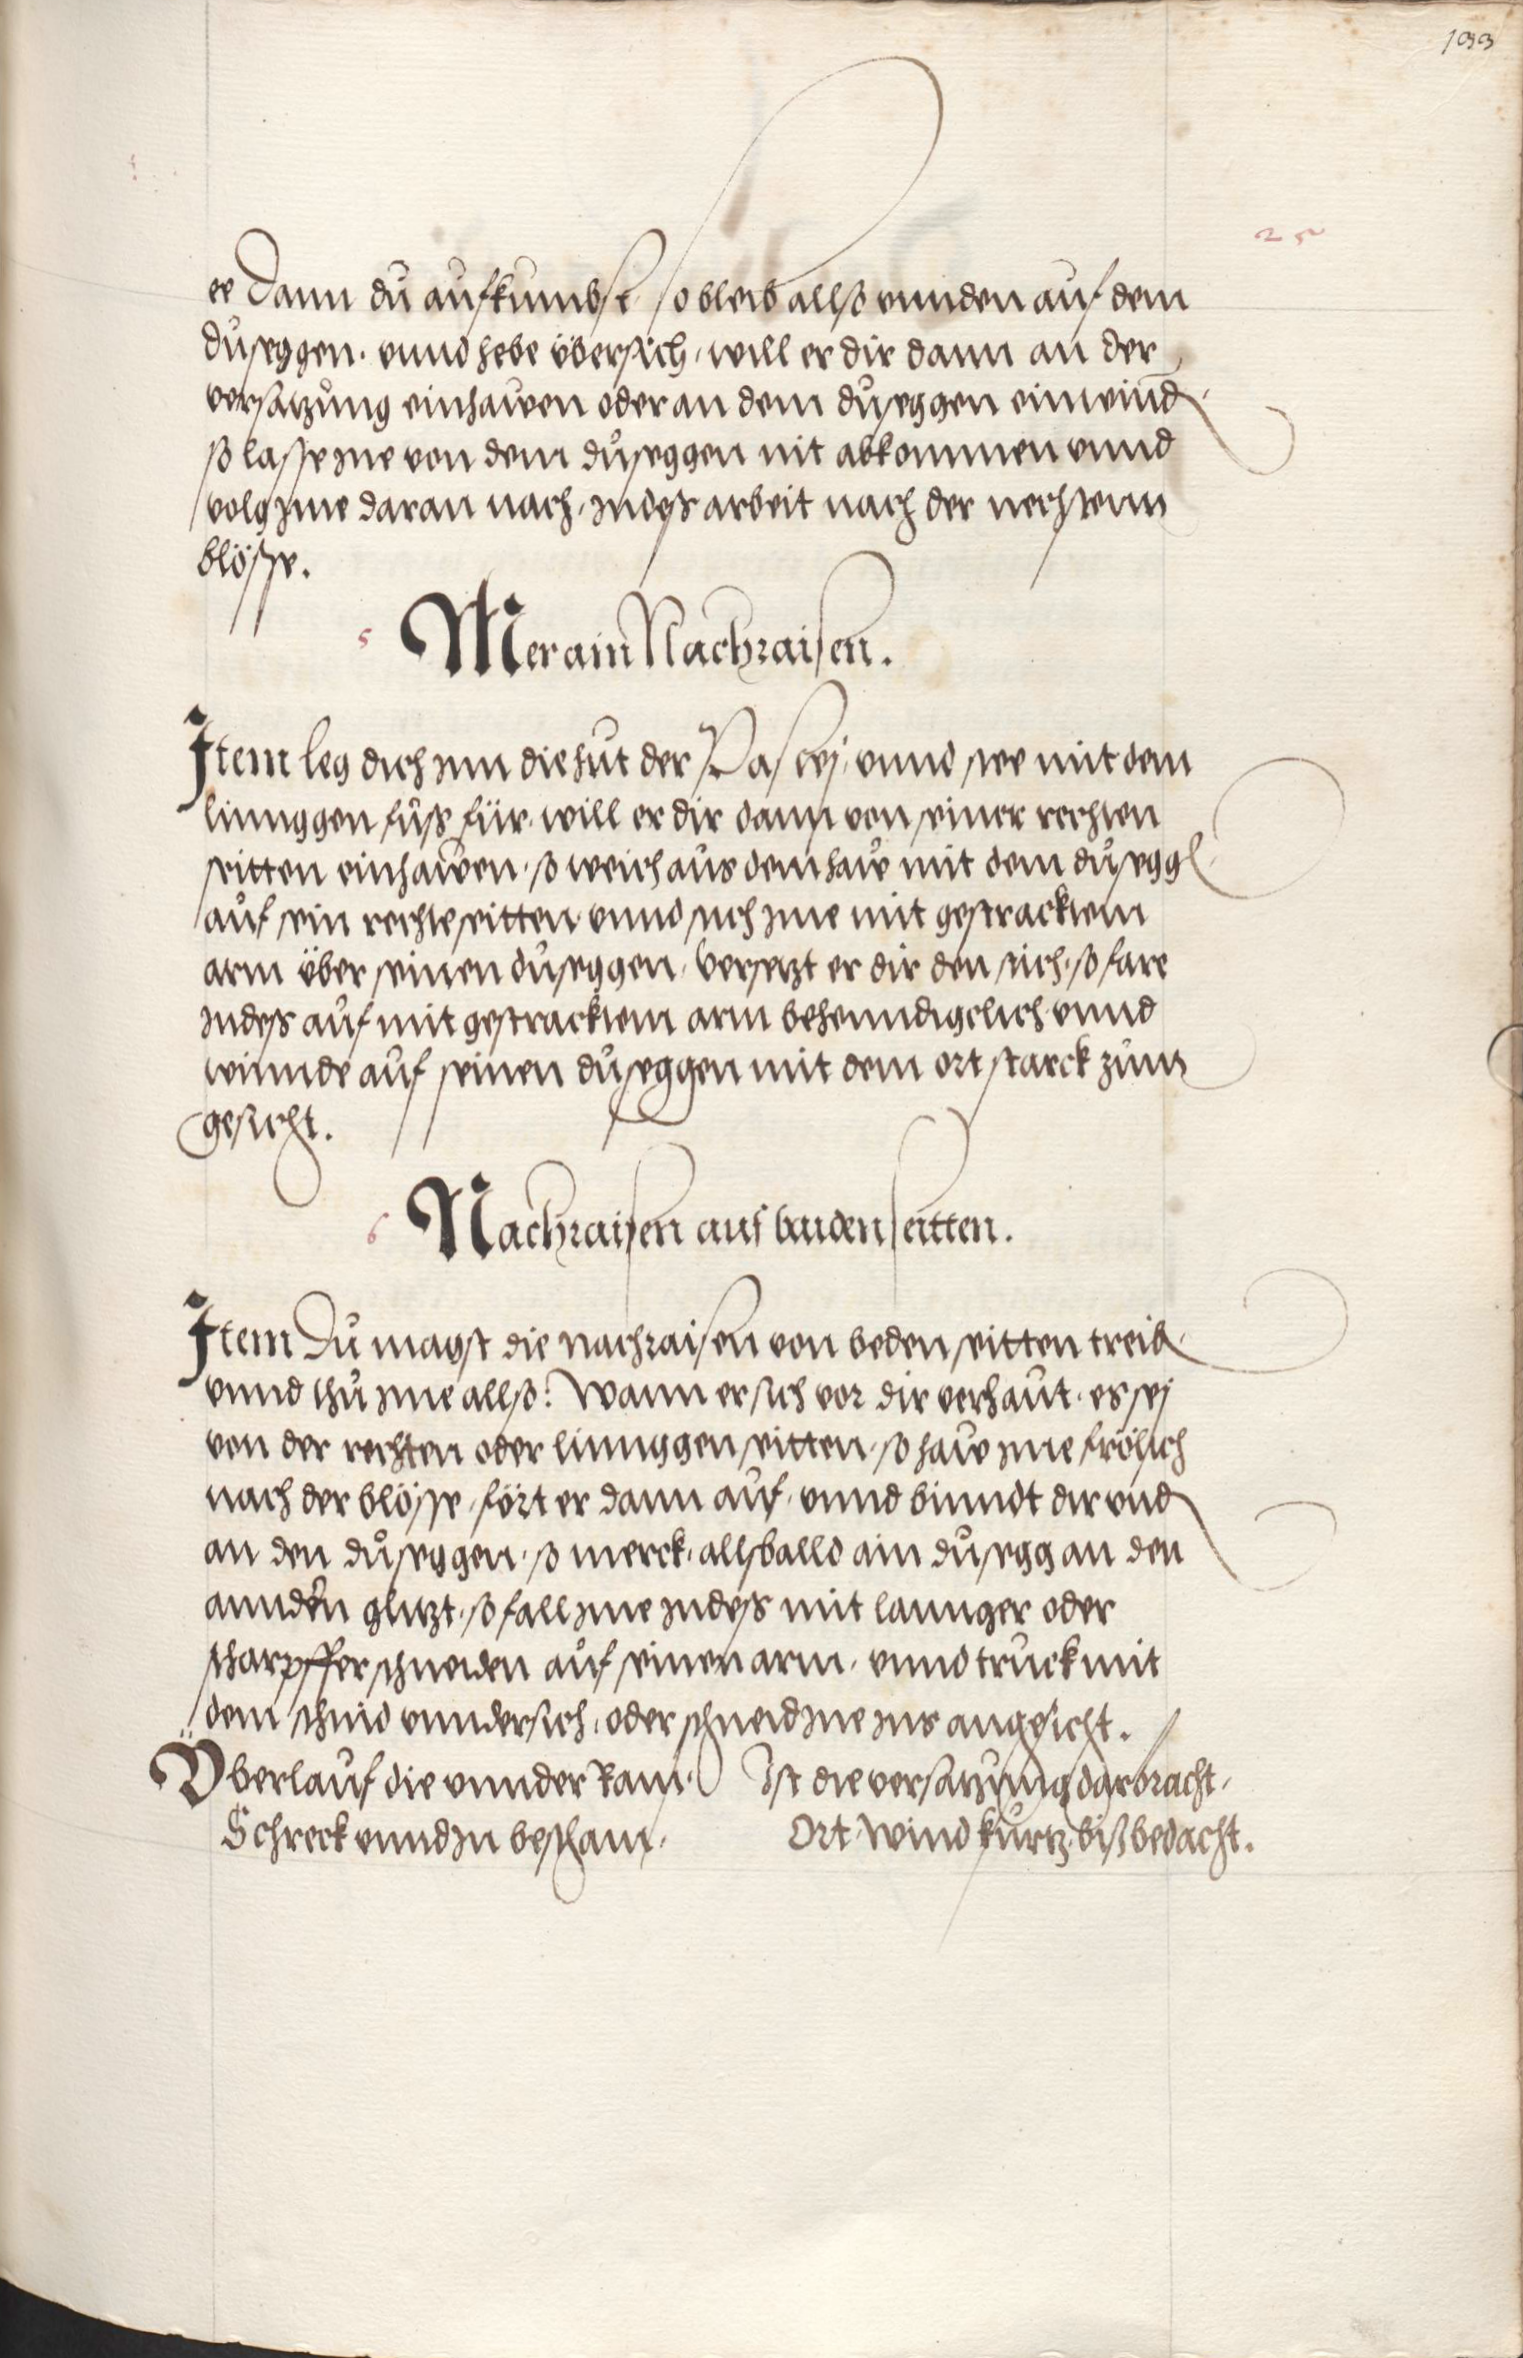 133
25
ee dann du aufkumbst so bleib allso vnnden auf dem
duseggen. vnnd hebe übersich, will er dir dann an der
versatzung einhawen oder an dem duseggen einwind
so lasse jne von dem duseggen nit abkommen vnnd
volg jme daran nach, jndess arbeit nach der nechstenn
blösse.
5 Mer ain Nachraisen.
Jtem leg dich jnn die hut der Pastej, vnnd stee mit dem
linnggen fuss für, will er dir dann von seiner rechten
seitten einhawen, so weich aus dem haw mit dem dusegg
auf sein rechte seitten, vnnd stich jme mit gestracktem
arm über seinen duseggen, versetzt er dir den stich, so fare
jndess auf mit gestracktem arm behenndigclich vnnd
winnde auf seinen duseggen mit dem ort starck zum
gesicht.
6 Nachraisen aus baiden seitten.
Jtem Du magst die nachraisen von beden seitten treib
vnnd thu jme allso: Wann er sich vor dir verhaut, es sej
von der rechten oder linnggen seitten, so haw jme frölich
nach der blösse, fört er dann auf, vnnd binndt dir vnd
an den duseggen, so merck, allsballd ain dusegg an den
anndern glitzt, so fall jme jndess mit lannger oder
scharpffer schneiden auf seinen arm, vnnd truck mit
dem schnid vnndersich, oder schneid jme jns angesicht.
Überlauf die vnnder ram, Ist die versatzung darbracht,
Schreck vnnd jn bescham, Ort wind kurtz biss bedacht.